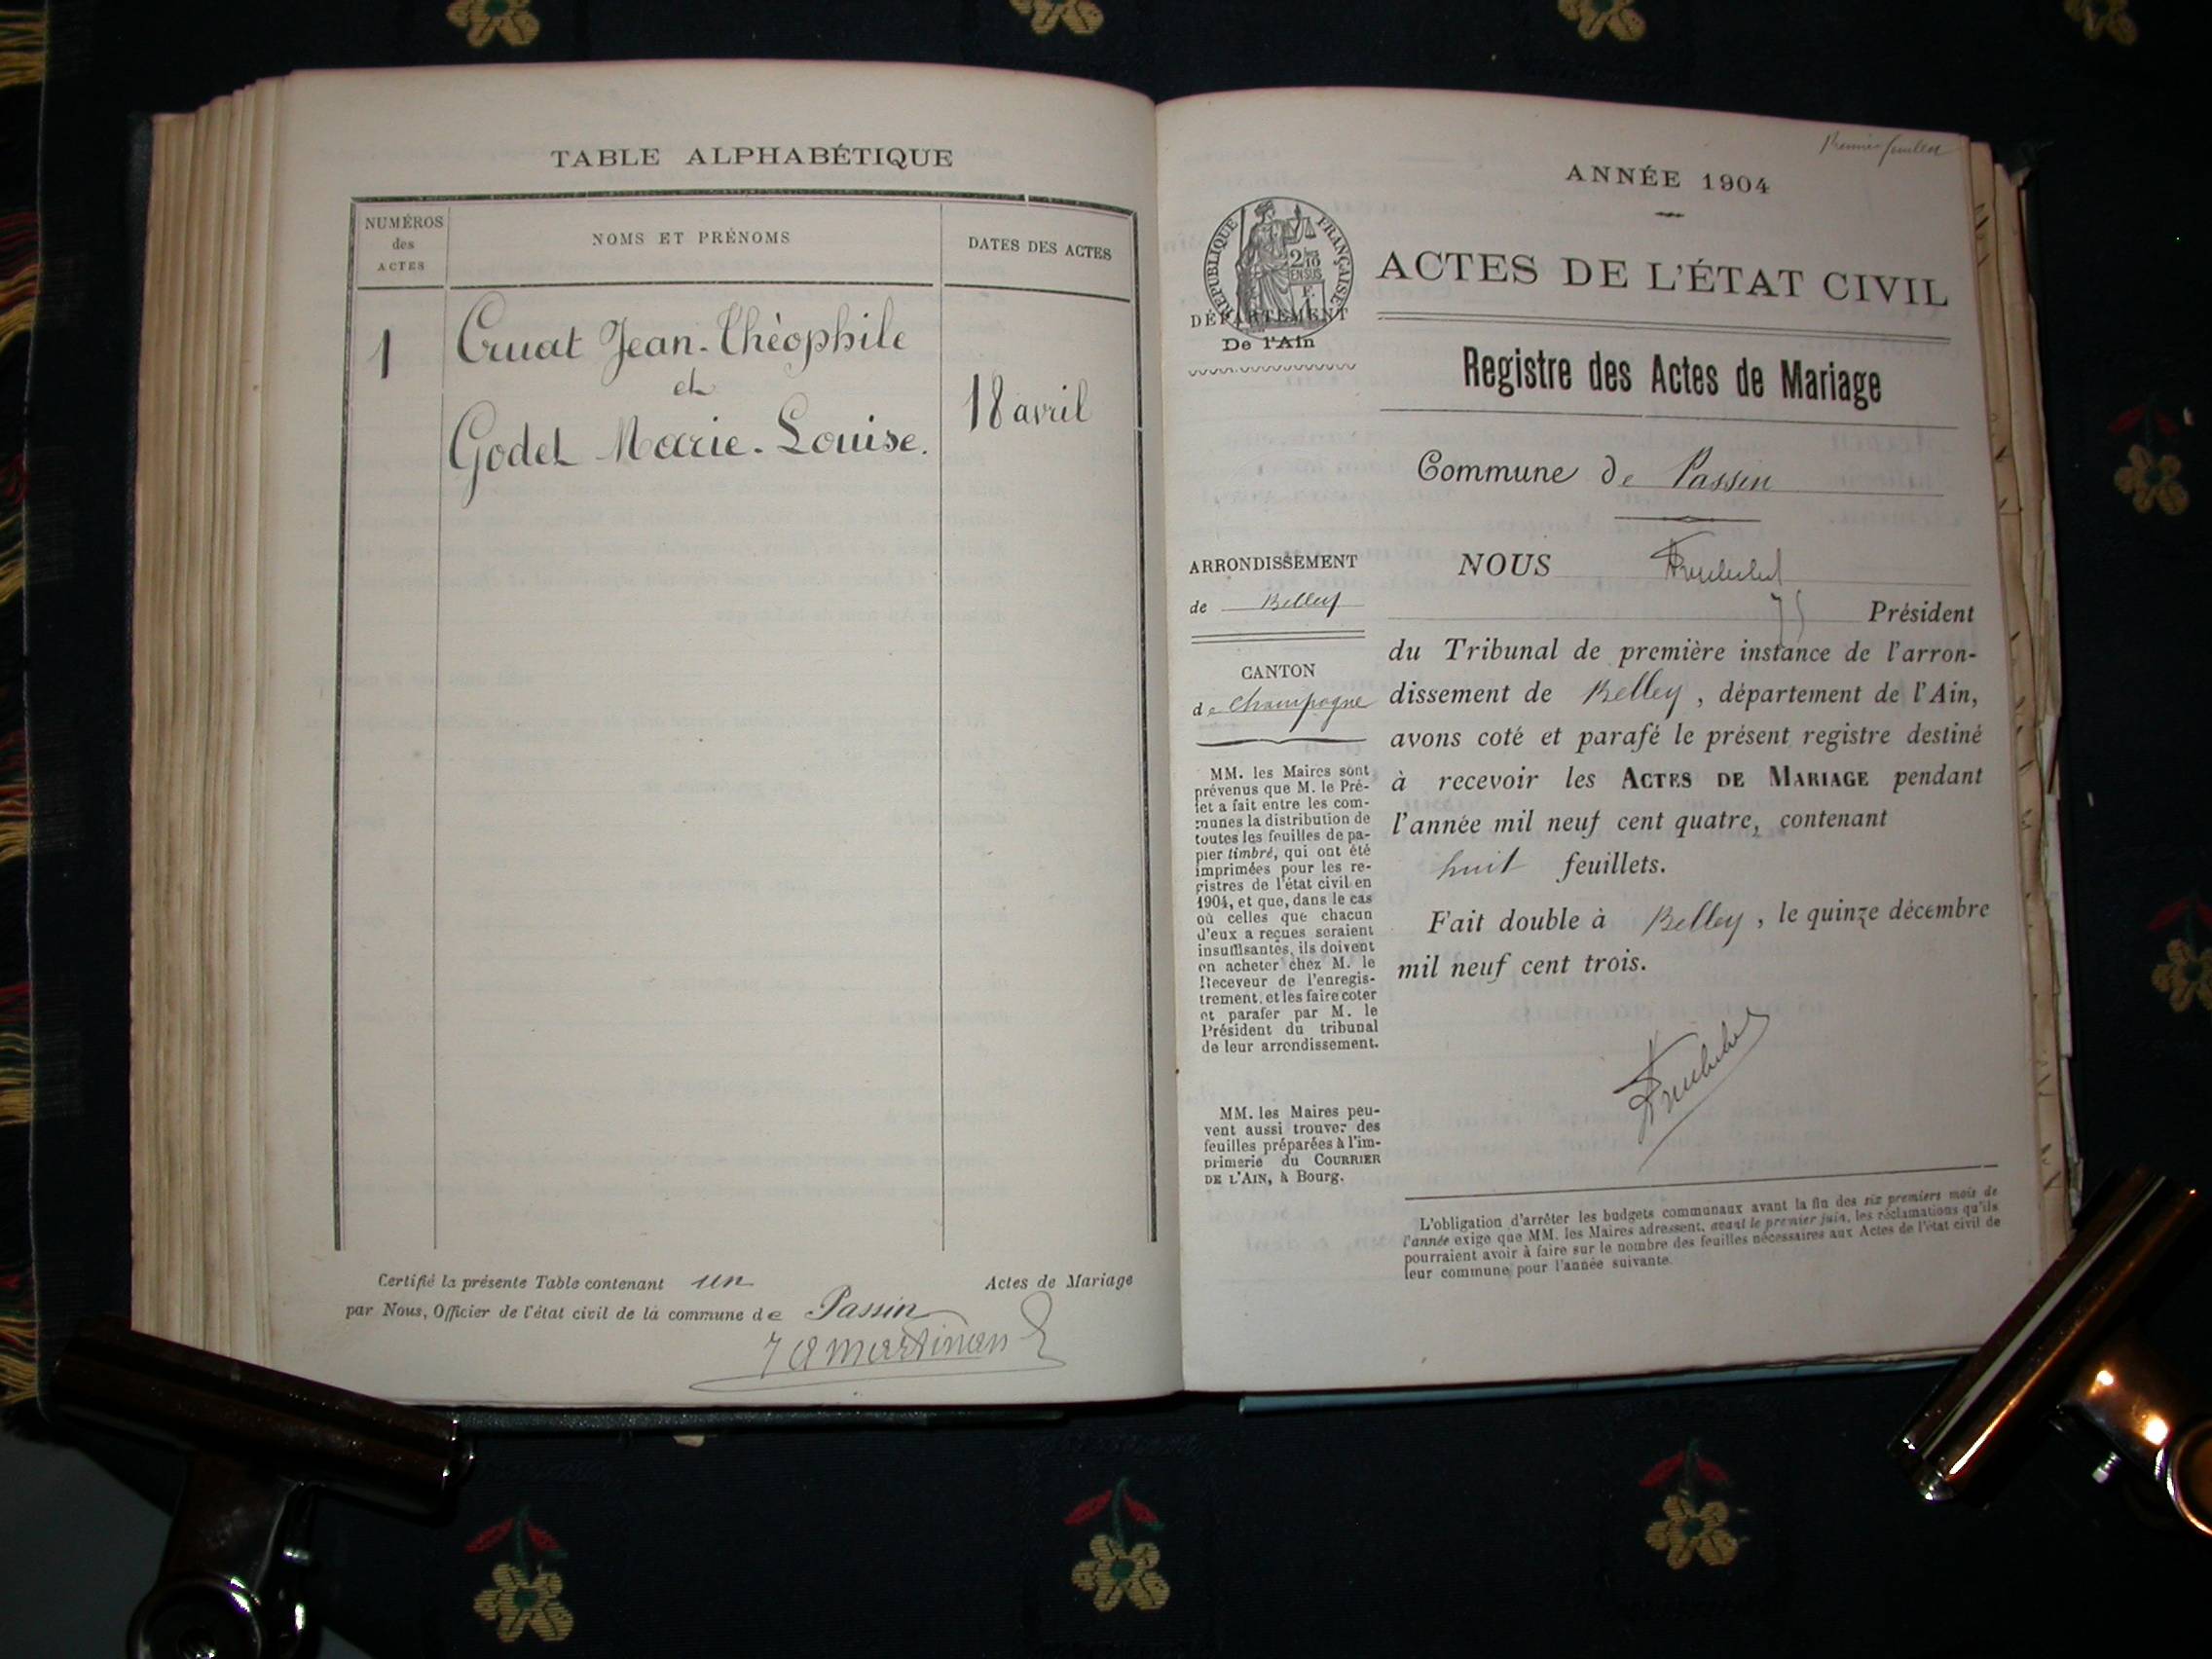 TABLE ALPHABÉTIQUE
NUMÉROS
des
ACTES
NOMS ET PRÉNOMS
DATES DES ACTES
1
Cruat Jean-Théophile
et
Godet Marie-Louise.
18 avril
Certifié la présente Table contenant un Actes de Mariage
par Nous, Officier de l'état civil de la commune de Passin
Premier feuillet
ANNÉE 1904
RÉPUBLIQUE FRANÇAISE
2/10
EN SUS
DÉPARTEMENT
De l'Ain
ACTES DE L'ÉTAT CIVIL
Registre des Actes de Mariage
Commune de Passin
ARRONDISSEMENT
de Belley
CANTON
de Champagne
MM. les Maires sont
prévenus que M. le Pré-
fet a fait entre les com-
munes la distribution de
toutes les feuilles de pa-
pier timbré, qui ont été
imprimées pour les re-
gistres de l'état civil en
1904, et que, dans le cas
où celles que chacun
d'eux a reçues seraient
insuffisantes, ils doivent
en acheter chez M. le
Receveur de l'enregis-
trement, et les faire coter
et parafer par M. le
Président du tribunal
de leur arrondissement.
MM. les Maires peu-
vent aussi trouver des
feuilles préparées à l'im-
primerie du COURRIER
DE L'AIN, à Bourg.
NOUS
Président
du Tribunal de première instance de l'arron-
dissement de Belley, département de l'Ain,
avons coté et parafé le présent registre destiné
à recevoir les ACTES DE MARIAGE pendant
l'année mil neuf cent quatre, contenant
huit feuillets.
Fait double à Belley, le quinze décembre
mil neuf cent trois.
L'obligation d'arrêter les budgets communaux avant la fin des six premiers mois de
l'année exige que MM. les Maires adressent, avant le premier juin, les réclamations qu'ils
pourraient avoir à faire sur le nombre des feuilles nécessaires aux Actes de l'état civil de
leur commune pour l'année suivante.